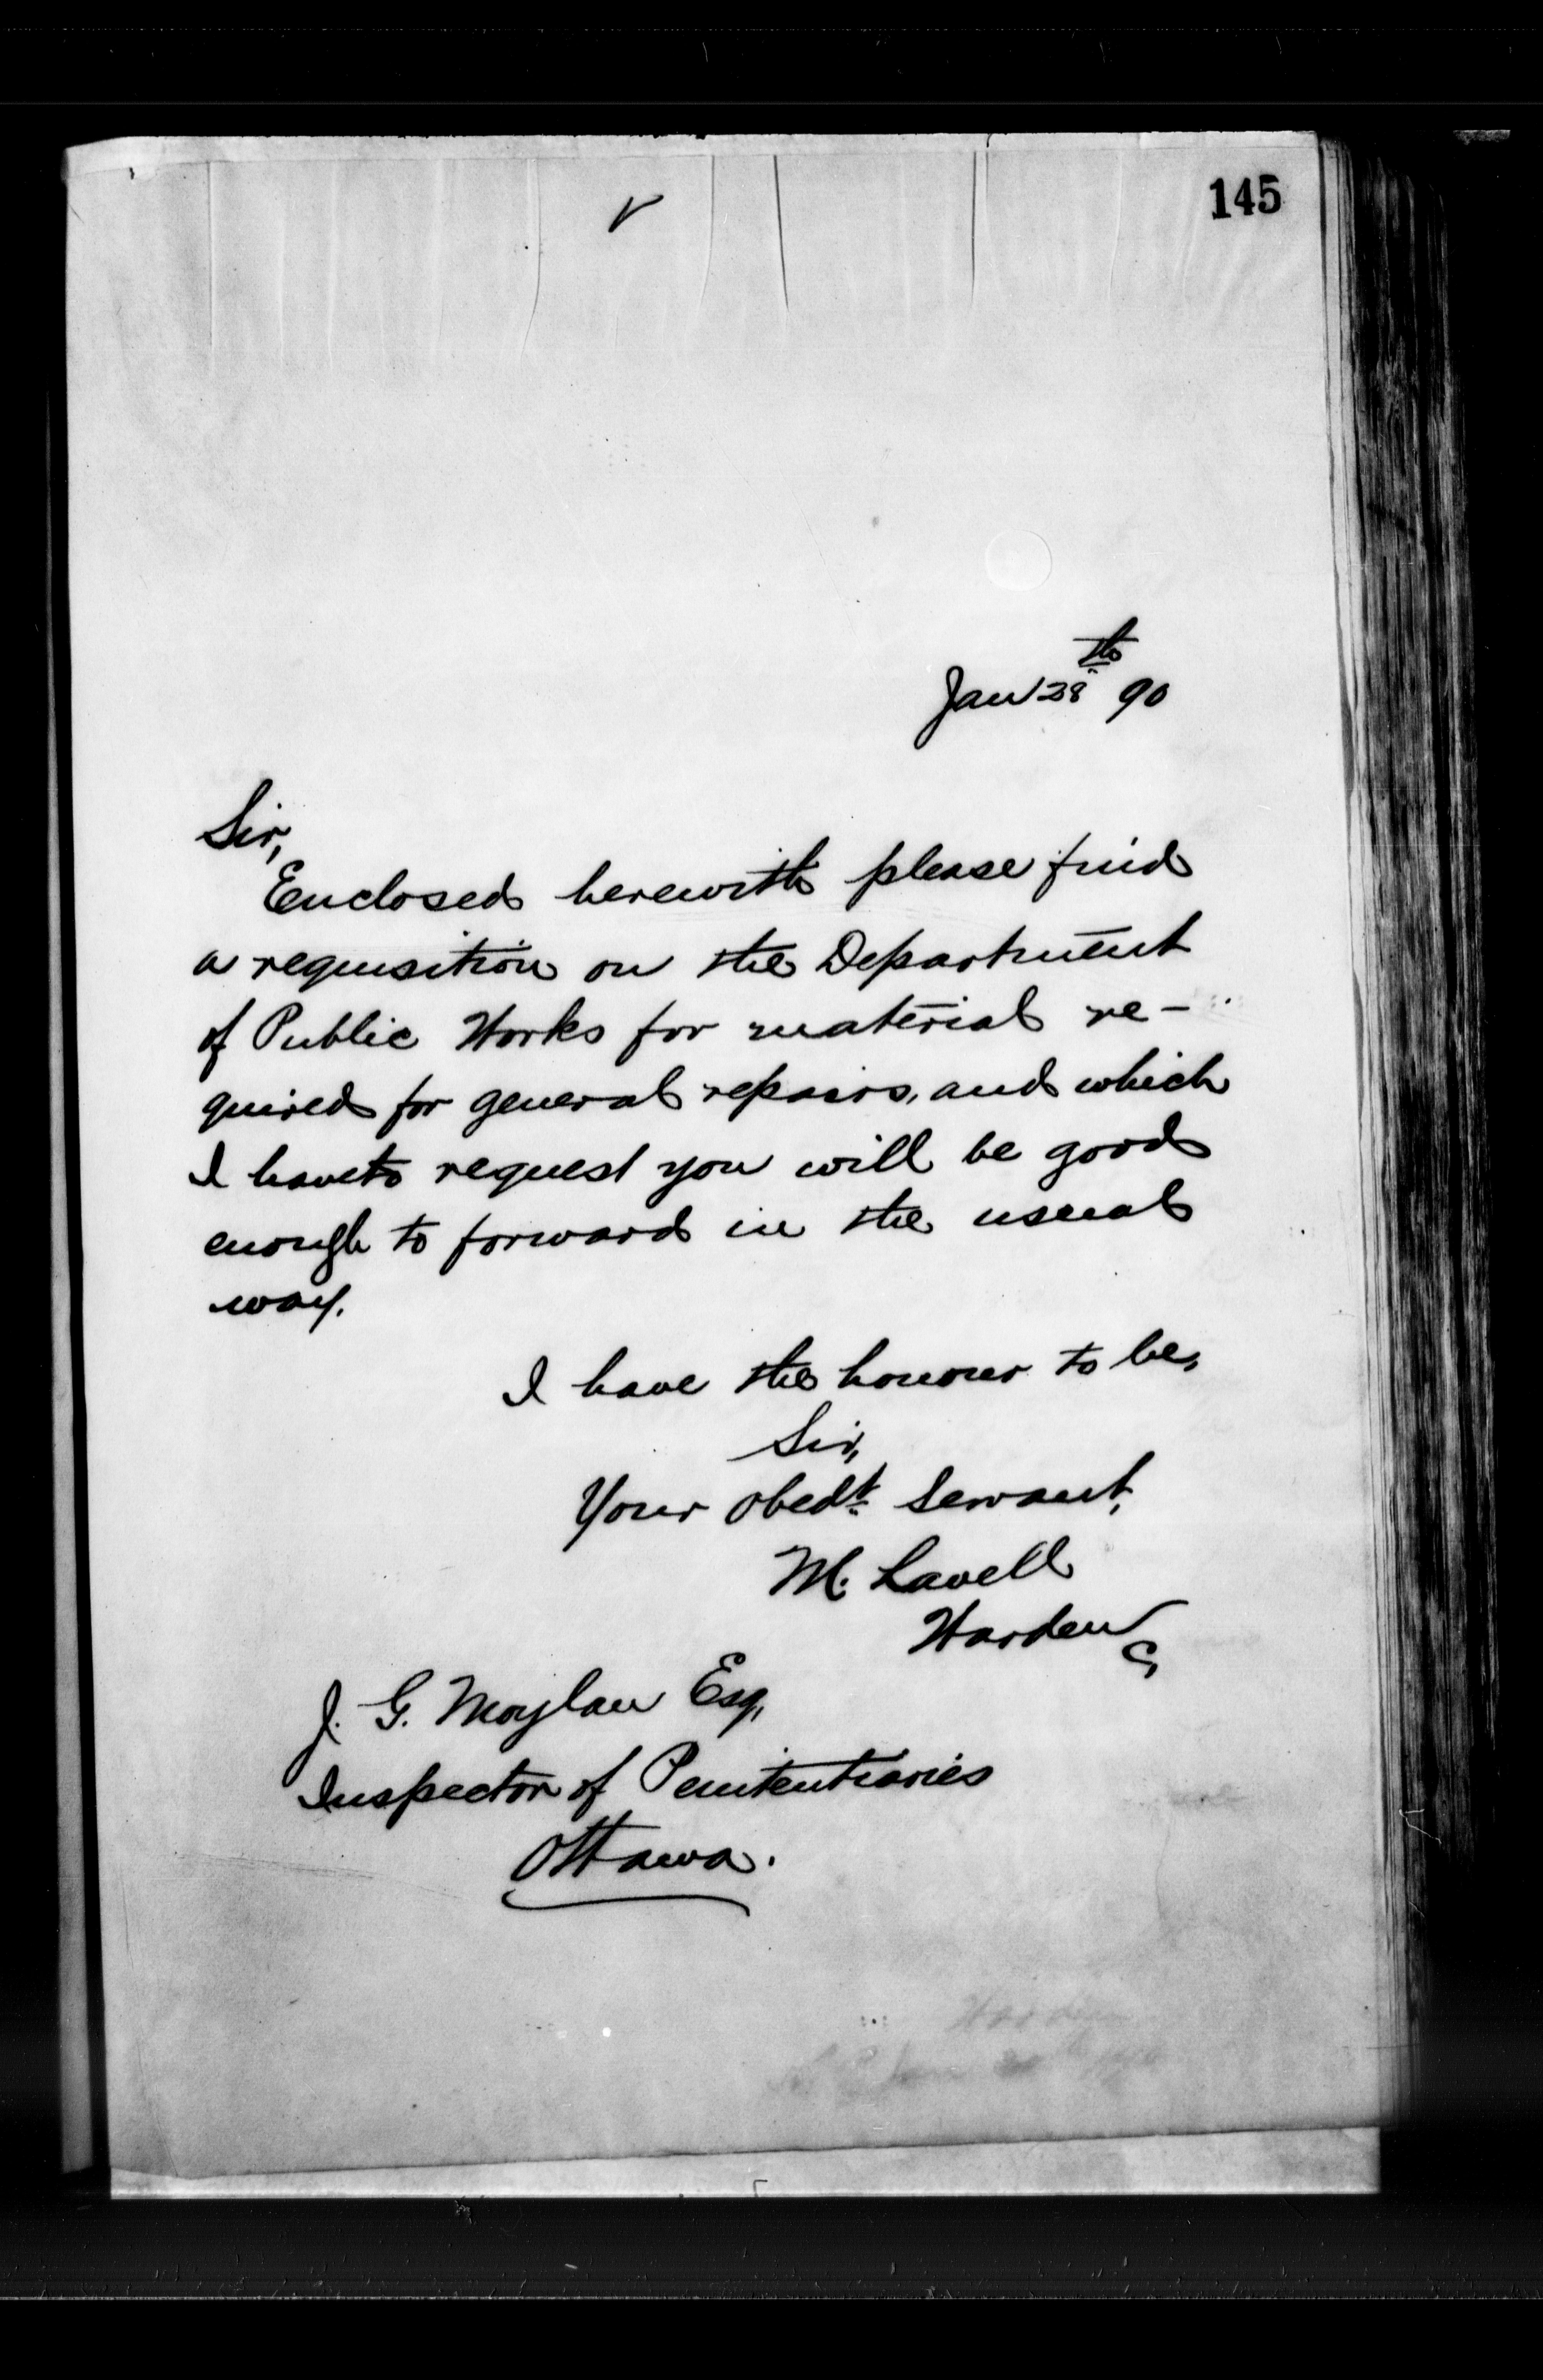 145
Jan 28th 90
Sir,
Enclosed herewith please find
a requisition on the Department
of Public Works for material re-
quired for general repairs, and which
I have to request you will be good
enough to forward in the usual
way.
I have the honour to be,
Sir,
Your obedt Servant,
M. Lavell
Warden
J. G. Moylan Esq,
Inspector of Penitentiaries
Ottawa.